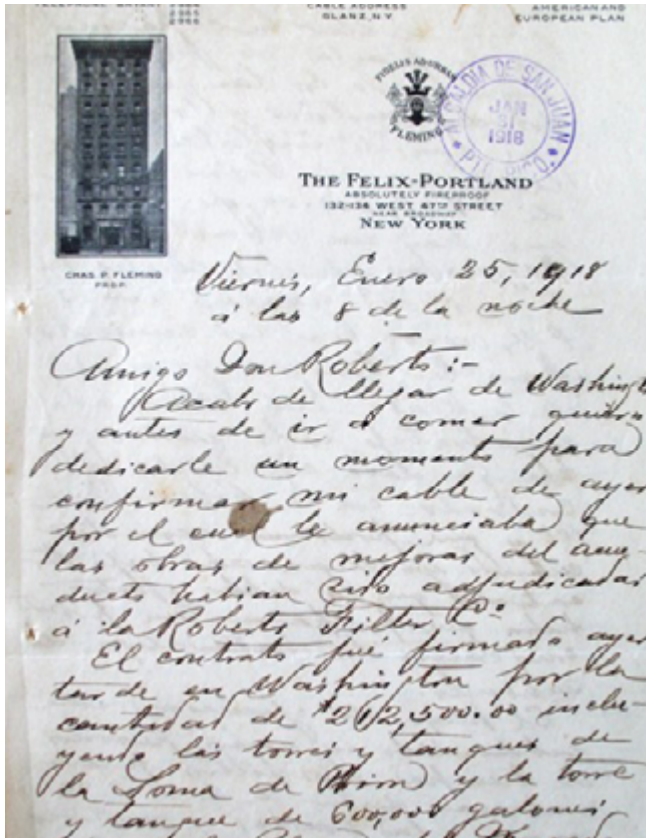 2965
CABLE ADDRESS
GLANZ, N.Y.
AMERICAN AND
EUROPEAN PLAN
FLEMING
ALCALDIA DE SAN JUAN
JAN
31
1918
PTO. RICO.
THE FELIX-PORTLAND
ABSOLUTELY FIREPROOF
132-136 WEST 47TH STREET
NEAR BROADWAY
NEW YORK
CHAS. P. FLEMING
PROP.
Viernes, Enero 25, 1918
á las 8 de la noche
Amigo Don Roberto:-
Acabo de llegar de Washingt
y antes de ir a comer quiero
dedicarle un momento para
confirmar mi cable de ayer
por el cual le anunciaba que
las obras de mejoras del acue-
ducto habian sido adjudicadas
á la Roberts Filter Co
El contrato fué firmado ayer
tarde en Washington por la
cantidad de $212,500.00 inclu-
yendo las torres y tanques de
la Loma de y la torre
y tanque de 600,000 galones